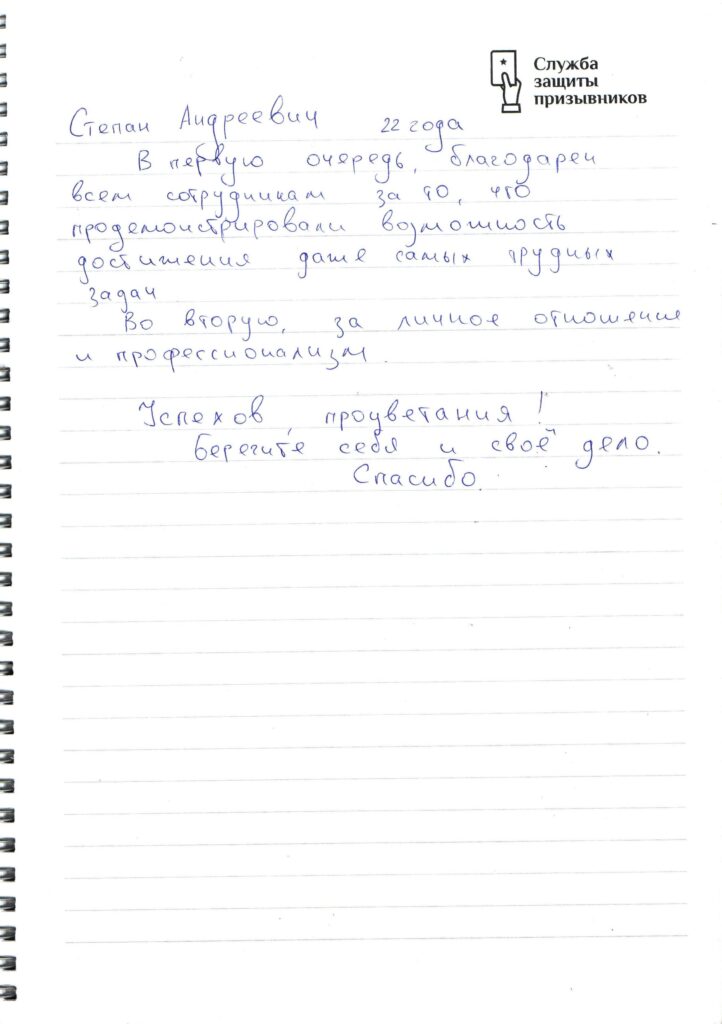 Служба
защиты
призывников
Степан Андреевич 22 года
В первую очередь, благодарен
всем сотрудникам за то, что
продемонстрировали возможность
достижения даже самых трудных
задач
Во вторую, за личное отношение
и профессионализм.
Успехов, процветания!
Берегите себя и своё дело.
Спасибо.